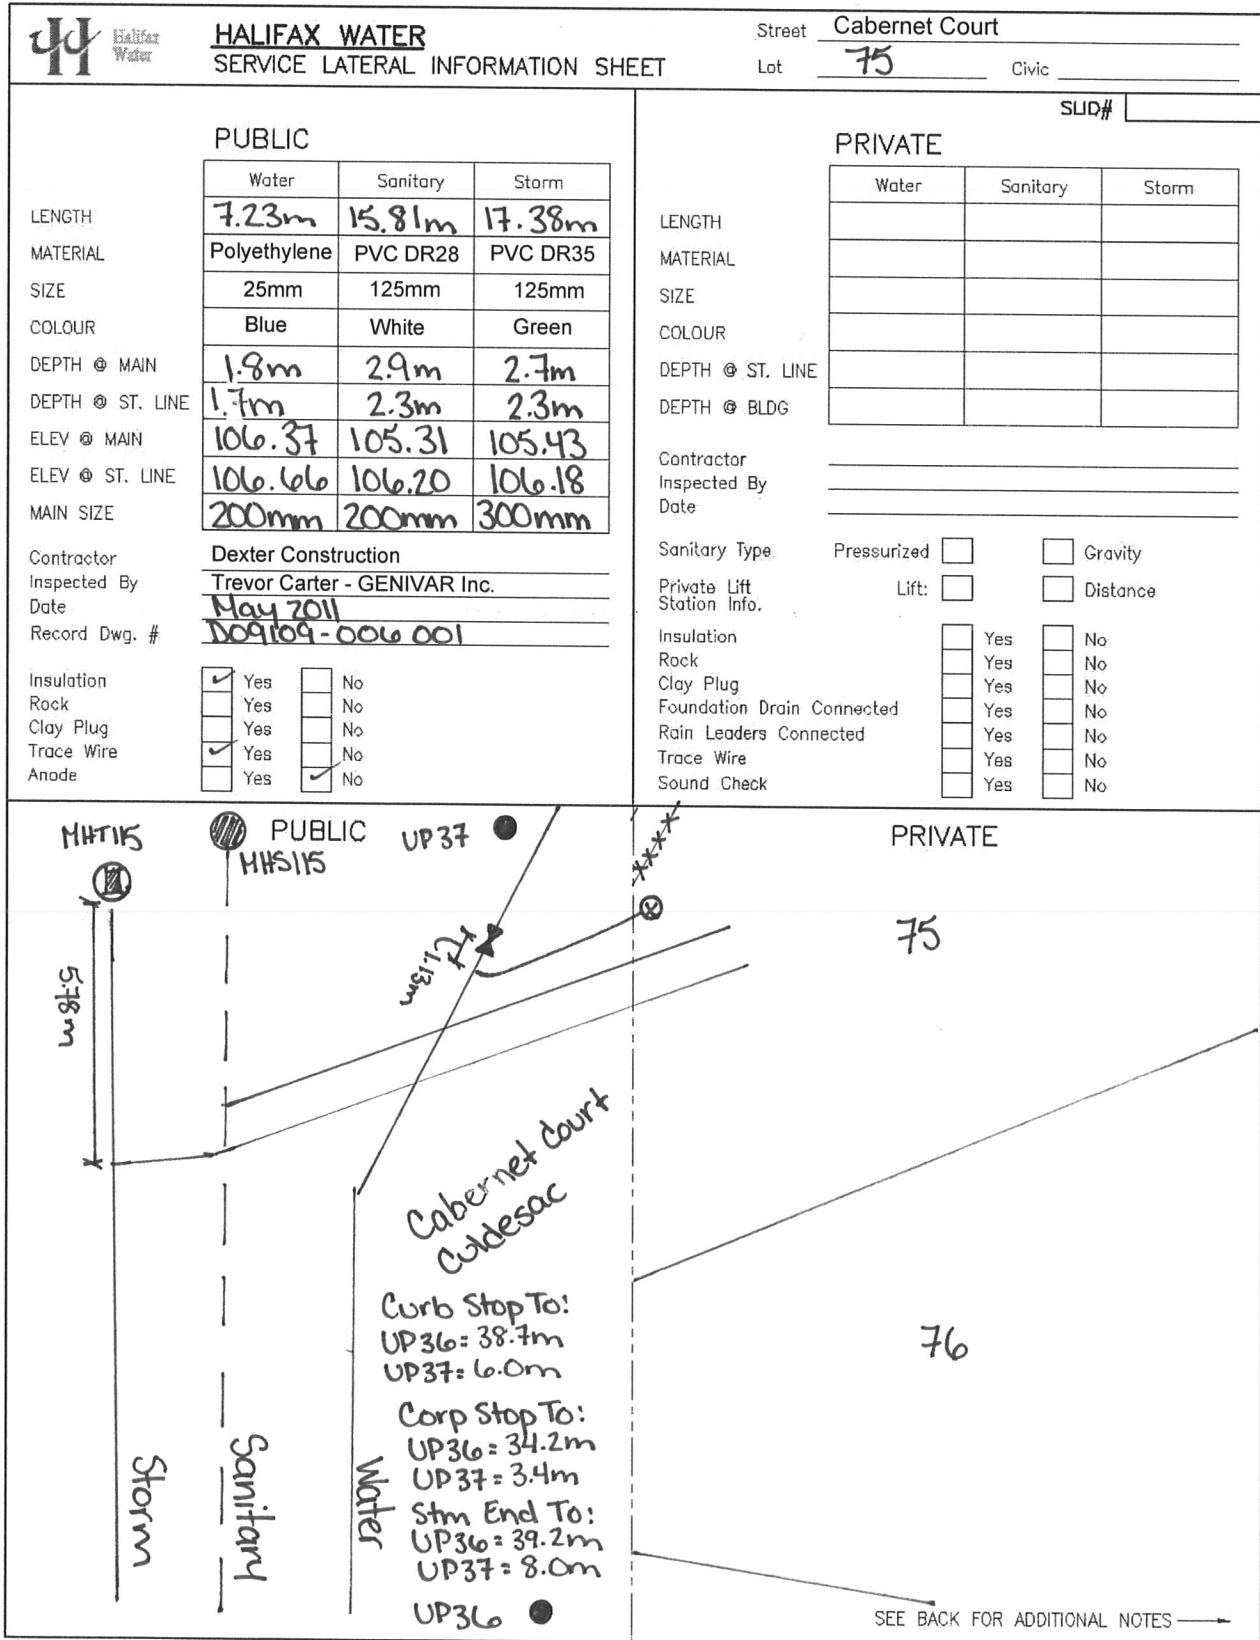 Halifax
Water
HALIFAX WATER
SERVICE LATERAL INFORMATION SHEET
Street Cabernet Court
Lot 75 Civic
SLID#
PUBLIC
Water Sanitary Storm
LENGTH 7.23m 15.81m 17.38m
MATERIAL Polyethylene PVC DR28 PVC DR35
SIZE 25mm 125mm 125mm
COLOUR Blue White Green
DEPTH @ MAIN 1.8m 2.9m 2.7m
DEPTH @ ST. LINE 1.7m 2.3m 2.3m
ELEV @ MAIN 106.37 105.31 105.43
ELEV @ ST. LINE 106.66 106.20 106.18
MAIN SIZE 200mm 200mm 300mm
Contractor Dexter Construction
Inspected By Trevor Carter - GENIVAR Inc.
Date May 2011
Record Dwg. # D09109-006 001
Insulation Yes No
Rock Yes No
Clay Plug Yes No
Trace Wire Yes No
Anode Yes No
PRIVATE
Water Sanitary Storm
LENGTH
MATERIAL
SIZE
COLOUR
DEPTH @ ST. LINE
DEPTH @ BLDG
Contractor
Inspected By
Date
Sanitary Type Pressurized Gravity
Private Lift Lift: Distance
Station Info.
Insulation Yes No
Rock Yes No
Clay Plug Yes No
Foundation Drain Connected Yes No
Rain Leaders Connected Yes No
Trace Wire Yes No
Sound Check Yes No
PUBLIC
MHT115
MHS115
UP37
1.13m
5.78m
Cabernet Court
Culdesac
Curb Stop To:
UP36= 38.7m
UP37= 6.0m
Corp Stop To:
UP36= 34.2m
UP37= 3.4m
Stm End To:
UP36= 39.2m
UP37= 8.0m
UP36
Storm
Sanitary
Water
PRIVATE
75
76
SEE BACK FOR ADDITIONAL NOTES